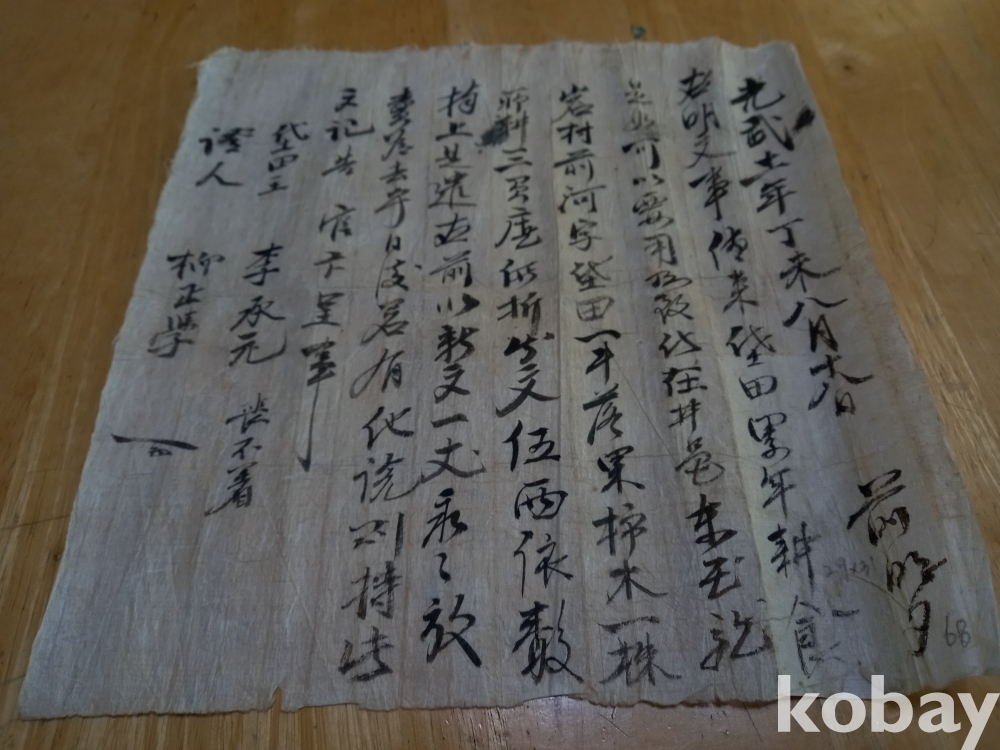 光武十一年丁未八月十八日 前明文
右明文事傳來垈田累年耕食
是如可以要用所致伏在井邑東面龍
岩村前河字垈田一斗落果柿木一株
所耕三負庫乙折價文伍兩依數
捧上是遣右前以新文一丈永永放
賣爲去乎日後若有他談則持此
文記告官卞呈事
垈田主 李承元 喪不着
證人 柳正學
68
kobay